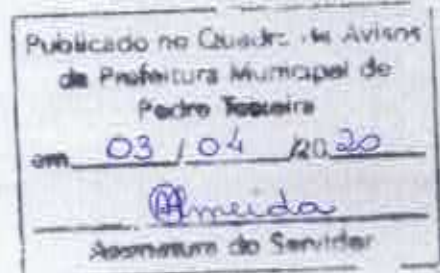 Publicado no Quadro de Avisos
da Prefeitura Municipal de
Pedro Teixeira
em 03 / 04 /20 20
Almeida
Assinatura do Servidor